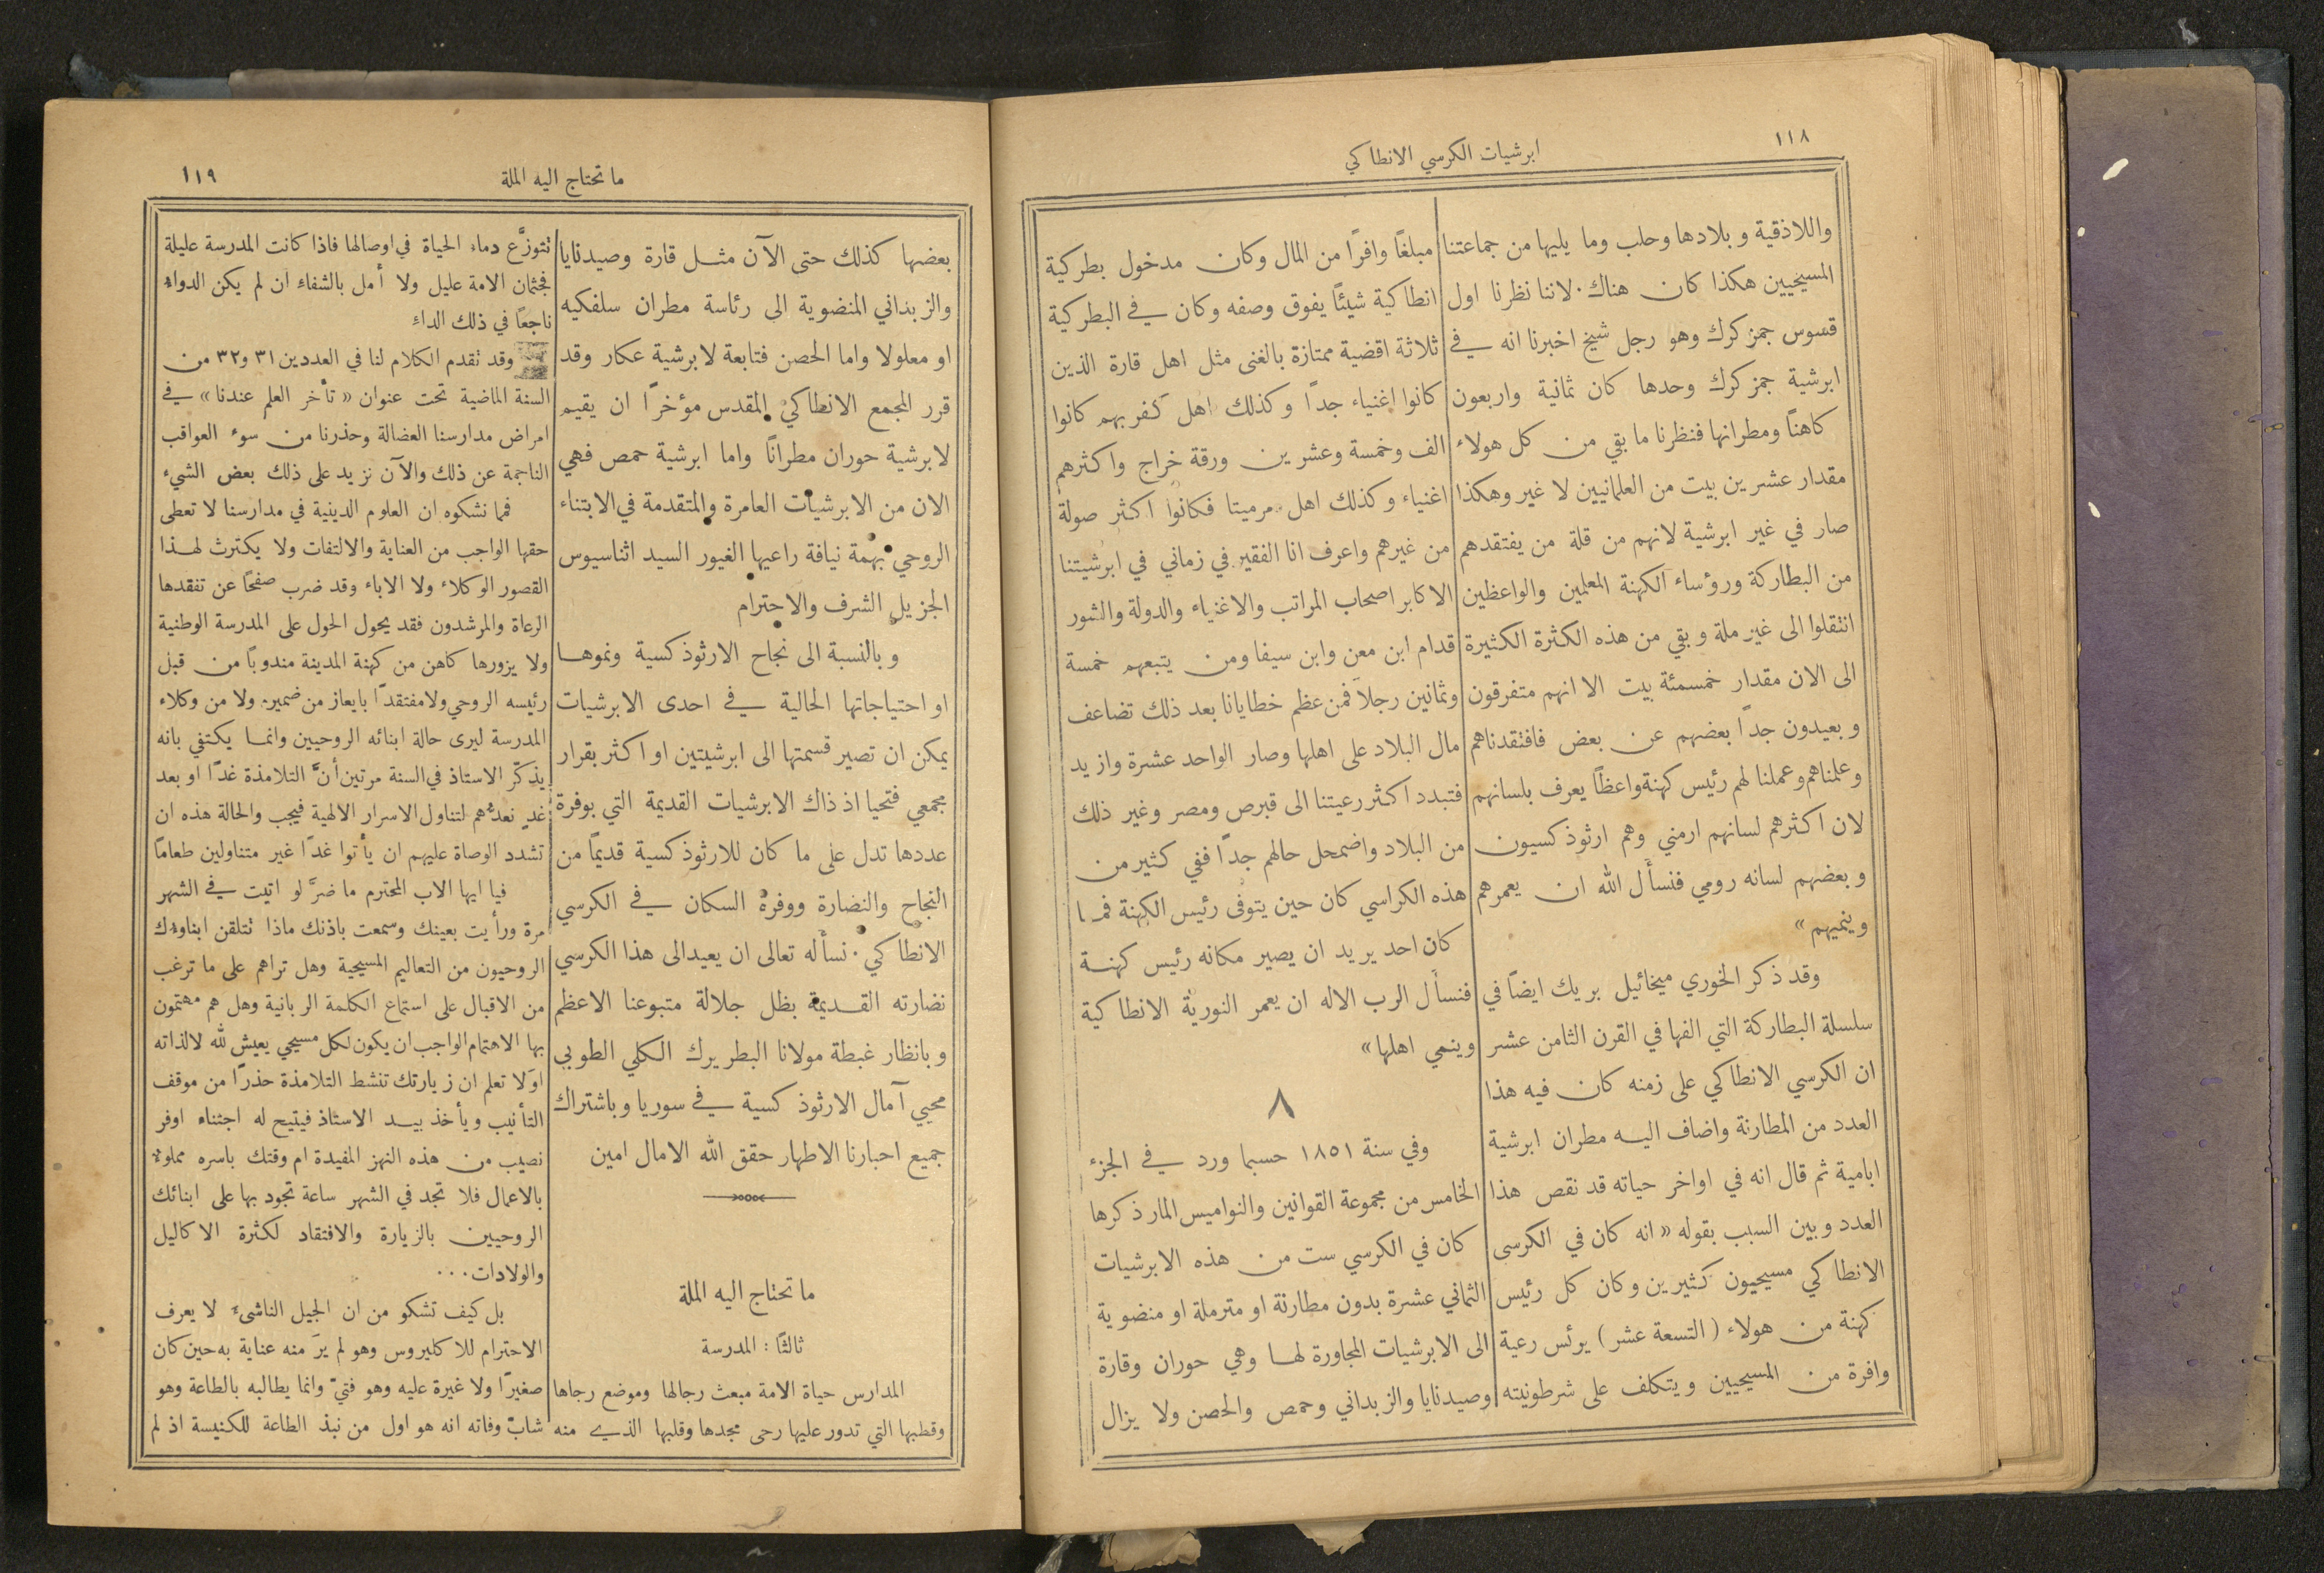 ١١٨
ابرشيات الكرسي الانطاكي
واللاذقية وبلادها وحلب وما يليها من جماعتنا
المسيحيين هكذا كان هناك. لاننا نظرنا اول
قسوس جمزكرك وهو رجل شيخ اخبرنا انه في
ابرشية جمزكرك وحدها كان ثمانية واربعون
كاهنًا ومطرانها فنظرنا ما بقي من كل هولاء
مقدار عشرين بيت من العلمانيين لا غير وهكذا
صار في غير ابرشية لانهم من قلة من يفتقدهم
من البطاركة ورؤساء الكهنة المعلمين والواعظين
انتقلوا الى غير ملة وبقي من هذه الكثرة الكثيرة
الى الان مقدار خمسمئة بيت الا انهم متفرقون
وبعيدون جدًا بعضهم عن بعض فافتقدناهم
وعلمناهم وعملنا لهم رئيس كهنة واعظًا يعرف بلسانهم
لان اكثرهم لسانهم ارمني وهم ارثوذكسيون
وبعضهم لسانه رومي فنسأل الله ان يعمرهم
وينميهم»
وقد ذكر الخوري ميخائيل بريك ايضًا في
سلسلة البطاركة التي الفها في القرن الثامن عشر
ان الكرسي الانطاكي على زمنه كان فيه هذا
العدد من المطارنة واضاف اليه مطران ابرشية
ابامية ثم قال انه في اواخر حياته قد نقص هذا
العدد وبين السبب بقوله « انه كان في الكرسى
الانطاكي مسيحيون كثيرين وكان كل رئيس
كهنة من هولاء (التسعة عشر) يرئس رعية
وافرة من المسيحيين ويتكلف على شرطونيته
مبلغًا وافرًا من المال وكان مدخول بطركية
انطاكية شيئًا يفوق وصفه وكان في البطركية
ثلاثة اقضية ممتازة بالغنى مثل اهل قارة الذين
كانوا اغنياء جدًا وكذلك اهل كفربهم كانوا
الف وخمسة وعشرين ورقة خراج واكثرهم
اغنياء وكذلك اهل مرميتا فكانوا اكثر صولة
من غيرهم واعرف انا الفقير في زماني في ابرشيتنا
الاكابر اصحاب المراتب والاغنياء والدولة والشور
قدام ابن معن وابن سيفا ومن يتبعهم خمسة
وثمانين رجلاً فمن عظم خطايانا بعد ذلك تضاعف
مال البلاد على اهلها وصار الواحد عشرة وازيد
فتبدد اكثر رعيتنا الى قبرص ومصر وغير ذلك
من البلاد واضمحل حالهم جدًا ففي كثير من
هذه الكراسي كان حين يتوفى رئيس الكهنة فما
كان احد يريد ان يصير مكانه رئيس كهنة
فنسأل الرب الاله ان يعمر النورية الانطاكية
وينمي اهلها»
٨
وفي سنة ١٨٥١ حسبما ورد في الجزء
الخامس من مجموعة القوانين والنواميس المار ذكرها
كان في الكرسي ست من هذه الابرشيات
الثماني عشرة بدون مطارنة او مترملة او منضوية
الى الابرشيات المجاورة لها وهي حوران وقارة
وصيدنايا والزبداني وحمص والحصن ولا يزال
ما تحتاج اليه الملة
١١٩
بعضها كذلك حتى الآن مثل قارة وصيدنايا
والزبداني المنضوية الى رئاسة مطران سلفكيه
او معلولا واما الحصن فتابعة لابرشية عكار وقد
قرر المجمع الانطاكي المقدس مؤخرًا ان يقيم
لابرشية حوران مطرانًا واما ابرشية حمص فهي
الان من الابرشيات العامرة والمتقدمة في الابتناء
الروحي بهمة نيافة راعيها الغيور السيد اثناسيوس
الجزيل الشرف والاحترام
وبالنسبة الى نجاح الارثوذكسية ونموها
او احتياجاتها الحالية في احدى الابرشيات
يمكن ان تصير قسمتها الى ابرشيتين او اكثر بقرار
مجمعي فتحيا اذ ذاك الابرشيات القديمة التي بوفرة
عددها تدل على ما كان للارثوذكسية قديمًا من
النجاح والنضارة ووفرة السكان في الكرسي
الانطاكي. نسأله تعالى ان يعيد الى هذا الكرسي
نضارته القديمة بظل جلالة متبوعنا الاعظم
وبانظار غبطة مولانا البطريرك الكلي الطوبي
محيي آمال الارثوذكسية في سوريا وباشتراك
جميع احبارنا الاطهار حقق الله الامال امين
ما تحتاج اليه الملة
ثالثًا : المدرسة
المدارس حياة الامة مبعث رجالها وموضع رجاها
وقطبها التي تدور عليها رحى مجدها وقلبها الذي منه
تتوزَّع دماء الحياة في اوصالها فاذا كانت المدرسة عليلة
فجثمان الامة عليل ولا أمل بالشفاء ان لم يكن الدواء
ناجعًا في ذلك الداء
وقد تقدم الكلام لنا في العددين ٣١ و٣٢ من
السنة الماضية تحت عنوان « تأخر العلم عندنا » في
امراض مدارسنا العضالة وحذرنا من سوء العواقب
الناجمة عن ذلك والآن نزيد على ذلك بعض الشيء
فما نشكوه ان العلوم الدينية في مدارسنا لا تعطى
حقها الواجب من العناية والالتفات ولا يكترث لهذا
القصور الوكلاء ولا الاباء وقد ضرب صفحًا عن تفقدها
الرعاة والمرشدون فقد يحول الحول على المدرسة الوطنية
ولا يزورها كاهن من كهنة المدينة مندوبًا من قبل
رئيسه الروحي ولا مفتقدًا بايعاز من ضميره ولا من وكلاء
المدرسة ليرى حالة ابنائه الروحيين وانما يكتفي بانه
يذكّر الاستاذ في السنة مرتين أنَّ التلامذة غدًا او بعد
غدٍ نعدُّهم لتناول الاسرار الالهية فيجب والحالة هذه ان
تشدد الوصاة عليهم ان يأتوا غدًا غير متناولين طعامًا
فيا ايها الاب المحترم ما ضرَّ لو اتيت في الشهر
مرة ورأيت بعينك وسمعت باذنك ماذا تتلقن ابناوءك
الروحيون من التعاليم المسيحية وهل تراهم على ما ترغب
من الاقبال على استماع الكلمة الربانية وهل هم مهتمون
بها الاهتمام الواجب ان يكون لكل مسيحي يعيش لله لا لذاته
اوَلا تعلم ان زيارتك تنشط التلامذة حذرًا من موقف
التأنيب ويأخذ بيد الاستاذ فيتيح له اجتناء اوفر
نصيب من هذه النهز المفيدة ام وقتك باسره مملوء
بالاعمال فلا تجد في الشهر ساعة تجود بها على ابنائك
الروحيين بالزيارة والافتقاد لكثرة الاكاليل
والولادات...
بل كيف تشكو من ان الجيل الناشىء لا يعرف
الاحترام للاكليروس وهو لم يرَ منه عناية به حين كان
صغيرًا ولا غيرة عليه وهو فتيّ وانما يطالبه بالطاعة وهو
شابّ وفاته انه هو اول من نبذ الطاعة للكنيسة اذ لم